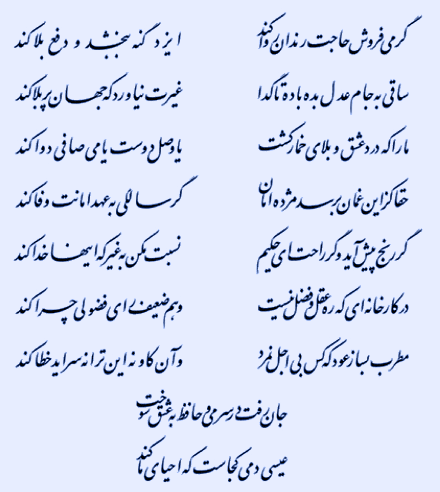 گر می فروش حاجت رندان روا کند ایزد گنه ببخشد و دفع بلا کند
ساقی به جام عدل بده باده تا گدا غیرت نیاورد که جهان پر بلا کند
ما را که درد عشق و بلای خمار کشت یا وصل دوست یا می صافی دوا کند
حقا کز این غمان برسد مژده امان گر سالکی به عهد امانت وفا کند
گر رنج پیش آید و گر راحت ای حکیم نسبت مکن به غیر که اینها خدا کند
در کارخانه‌ای که ره عقل و فضل نیست وهم ضعیف رای فضولی چرا کند
مطرب بساز عود که کس بی اجل نمرد وآن کاو نه این ترانه سراید خطا کند
جان رفت در سر می و حافظ به عشق سوخت
عیسی دمی کجاست که احیای ما کند